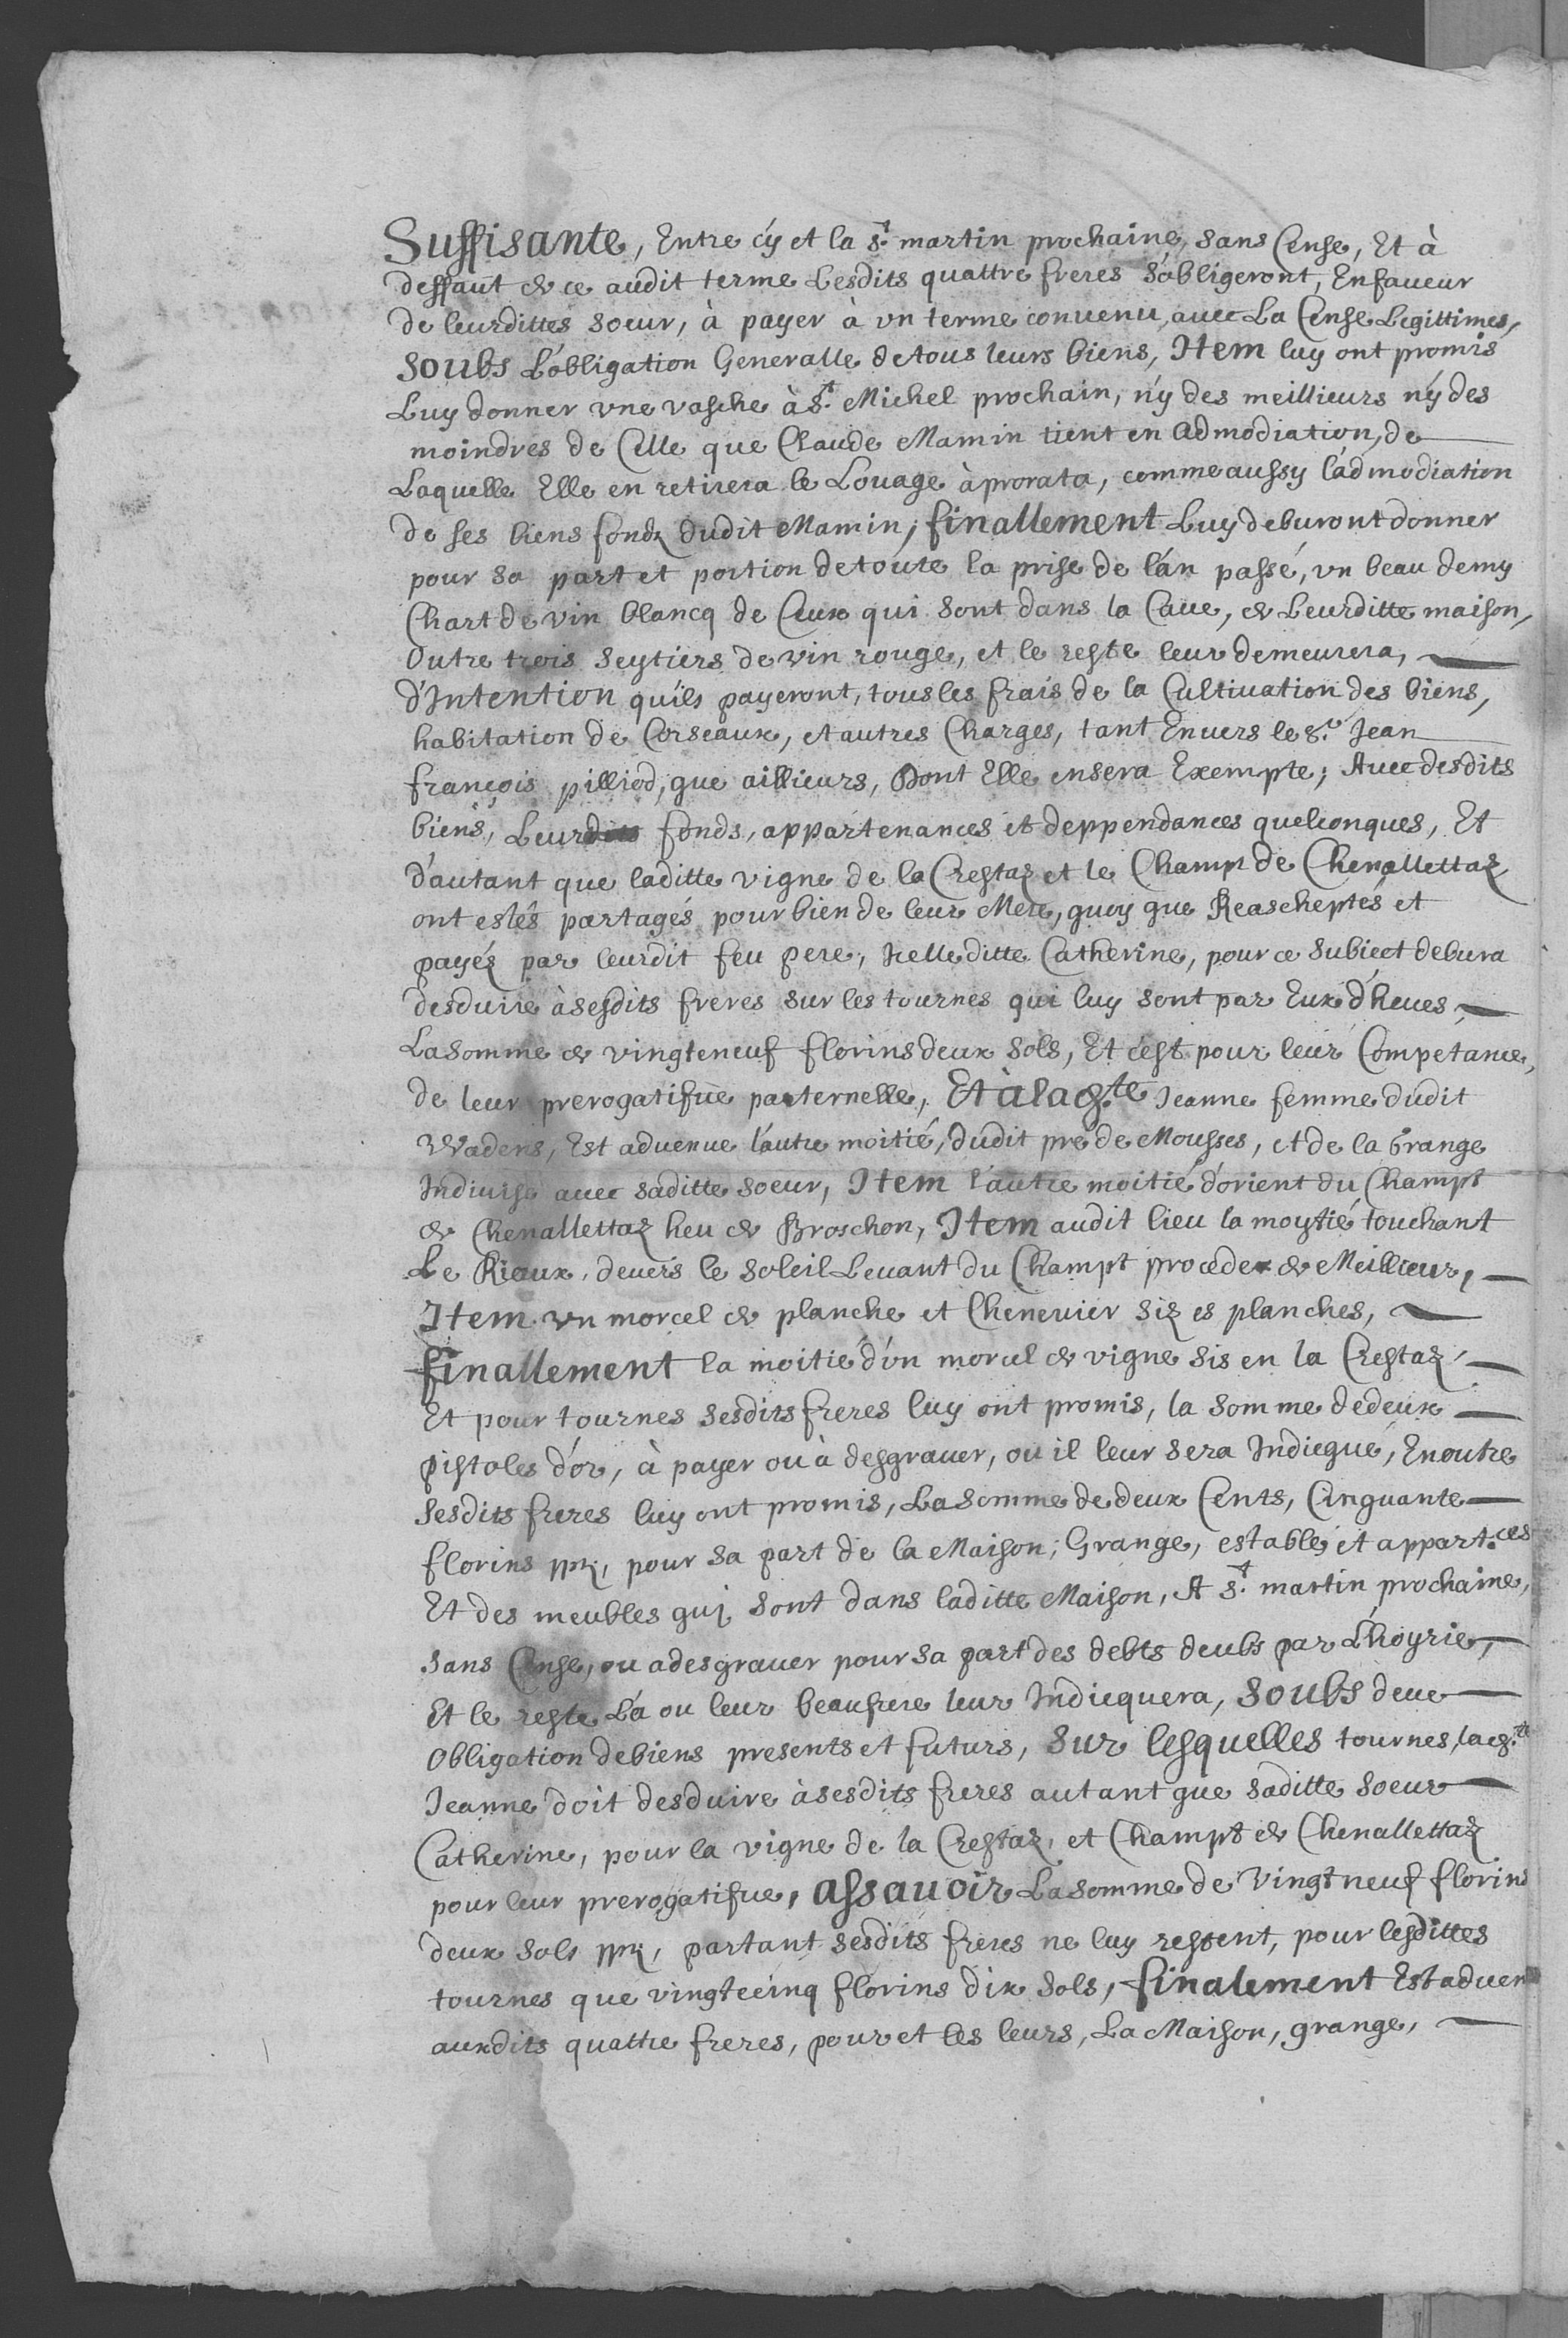 Suffisante, Entre cy et la st. martin prochaine, sans Cense, Et à
deffaut de ce audit terme Lesdits quattre freres s'obligeront, Enfaueur
de leurdittes soeur, à payer à vn terme conuenu, auec La Cense Legittimes,
soubs L'obligation Generalle de tous leurs biens, Item luy ont promis
Luy donner vne vasche à st. Michel prochain, n'y des meillieurs n'y des
moindres de Celle que Claude Mamin tient en admodiation, de
Laquelle Elle en retirera le Louage à prorata, comme aussy l'admodiation
de ses biens fondz dudit Mamin, finallement Luy deburont donner
pour sa part et portion de toute la prise de l'an passé, vn beau demy
Chart de vin blancq de Ceux qui sont dans la Caue, de Leurditte maison,
Outre trois seytiers de vin rouge, et le reste leur demeurera,
d'Intention qu'ils payeront, tous les frais de la Cultiuation des biens,
habitation de Corseaux, et autres Charges, tant Enuers le sr. Jean
françois pilliod, que aillieurs, Dont Elle en sera Exempte; Auec desdits
biens, Leur fonds, appartenances et deppendances quelconques, Et
d'autant que laditte vigne de la Crestaz et le Champt de Chenallettaz
ont estés partagés pour bien de leur Mere, quoy que Reascheptés et
payéz par leurdit feu pere, Icelle ditte Catherine, pour ce subiect debura
desduire à sesdits freres sur les tournes qui luy sont par Eux d'heues,
La somme de vingteneuf florins deux sols, Et c'est pour leur Competance,
de leur prerogatifue paternelle, Et à la ste. Jeanne femme dudit
Wadens, Est aduenue l'autre moitié, dudit pre de Mousses, et de la Grange
Indiuise auec saditte soeur, Item l'autre moitié d'orient du Champt
de Chenallettaz lieu de Broschon, Item audit lieu la moytié touchant
Le Riaux, deuers le soleil Leuant du Champt procede de Meillieur,
Item vn morcel de planche et Cheneuier siz es planches,
finallement la moitié d'un morcel de vigne sis en la Crestaz,
Et pour tournes sesdits freres luy ont promis, la somme de deux
pistoles d'or, à payer ou à desgrauer, ou il leur sera Indiequé, En outre
sesdits freres luy ont promis, La somme de deux Cents, Cinquante
florins pp., pour sa part de la Maison, Grange, estable, et appart.ces
Et des meubles qui sont dans laditte Maison, A st. martin prochaine,
sans Cense, ou a desgrauer pour sa part des debts deubs par L'hoyrie,
Et le reste La ou leur beaufrere leur Indiequera, soubs deue
Obligation de biens presents et futurs, sur lesquelles tournes, la ste.
Jeanne doit desduire à sesdits freres autant que saditte soeur
Catherine, pour la vigne de la Crestaz, et Champt de Chenallettaz
pour leur prerogatifue, assauoir La somme de vingt neuf florins
deux sols pp., partant sesdits freres ne luy restent, pour lesdittes
tournes que vingtecinq florins dix sols, finalement Est aduen
auxdits quattre freres, pour et les leurs, La Maison, grange,